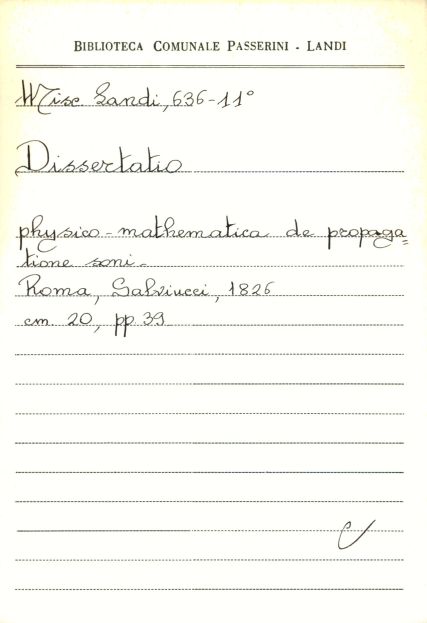 BIBLIOTECA COMUNALE PASSERINI - LANDI
Misc Landi, 636-11°
Dissertatio
physico-mathematica de propaga=
tione soni.
Roma, Salviucci, 1826
cm. 20, pp 39
C